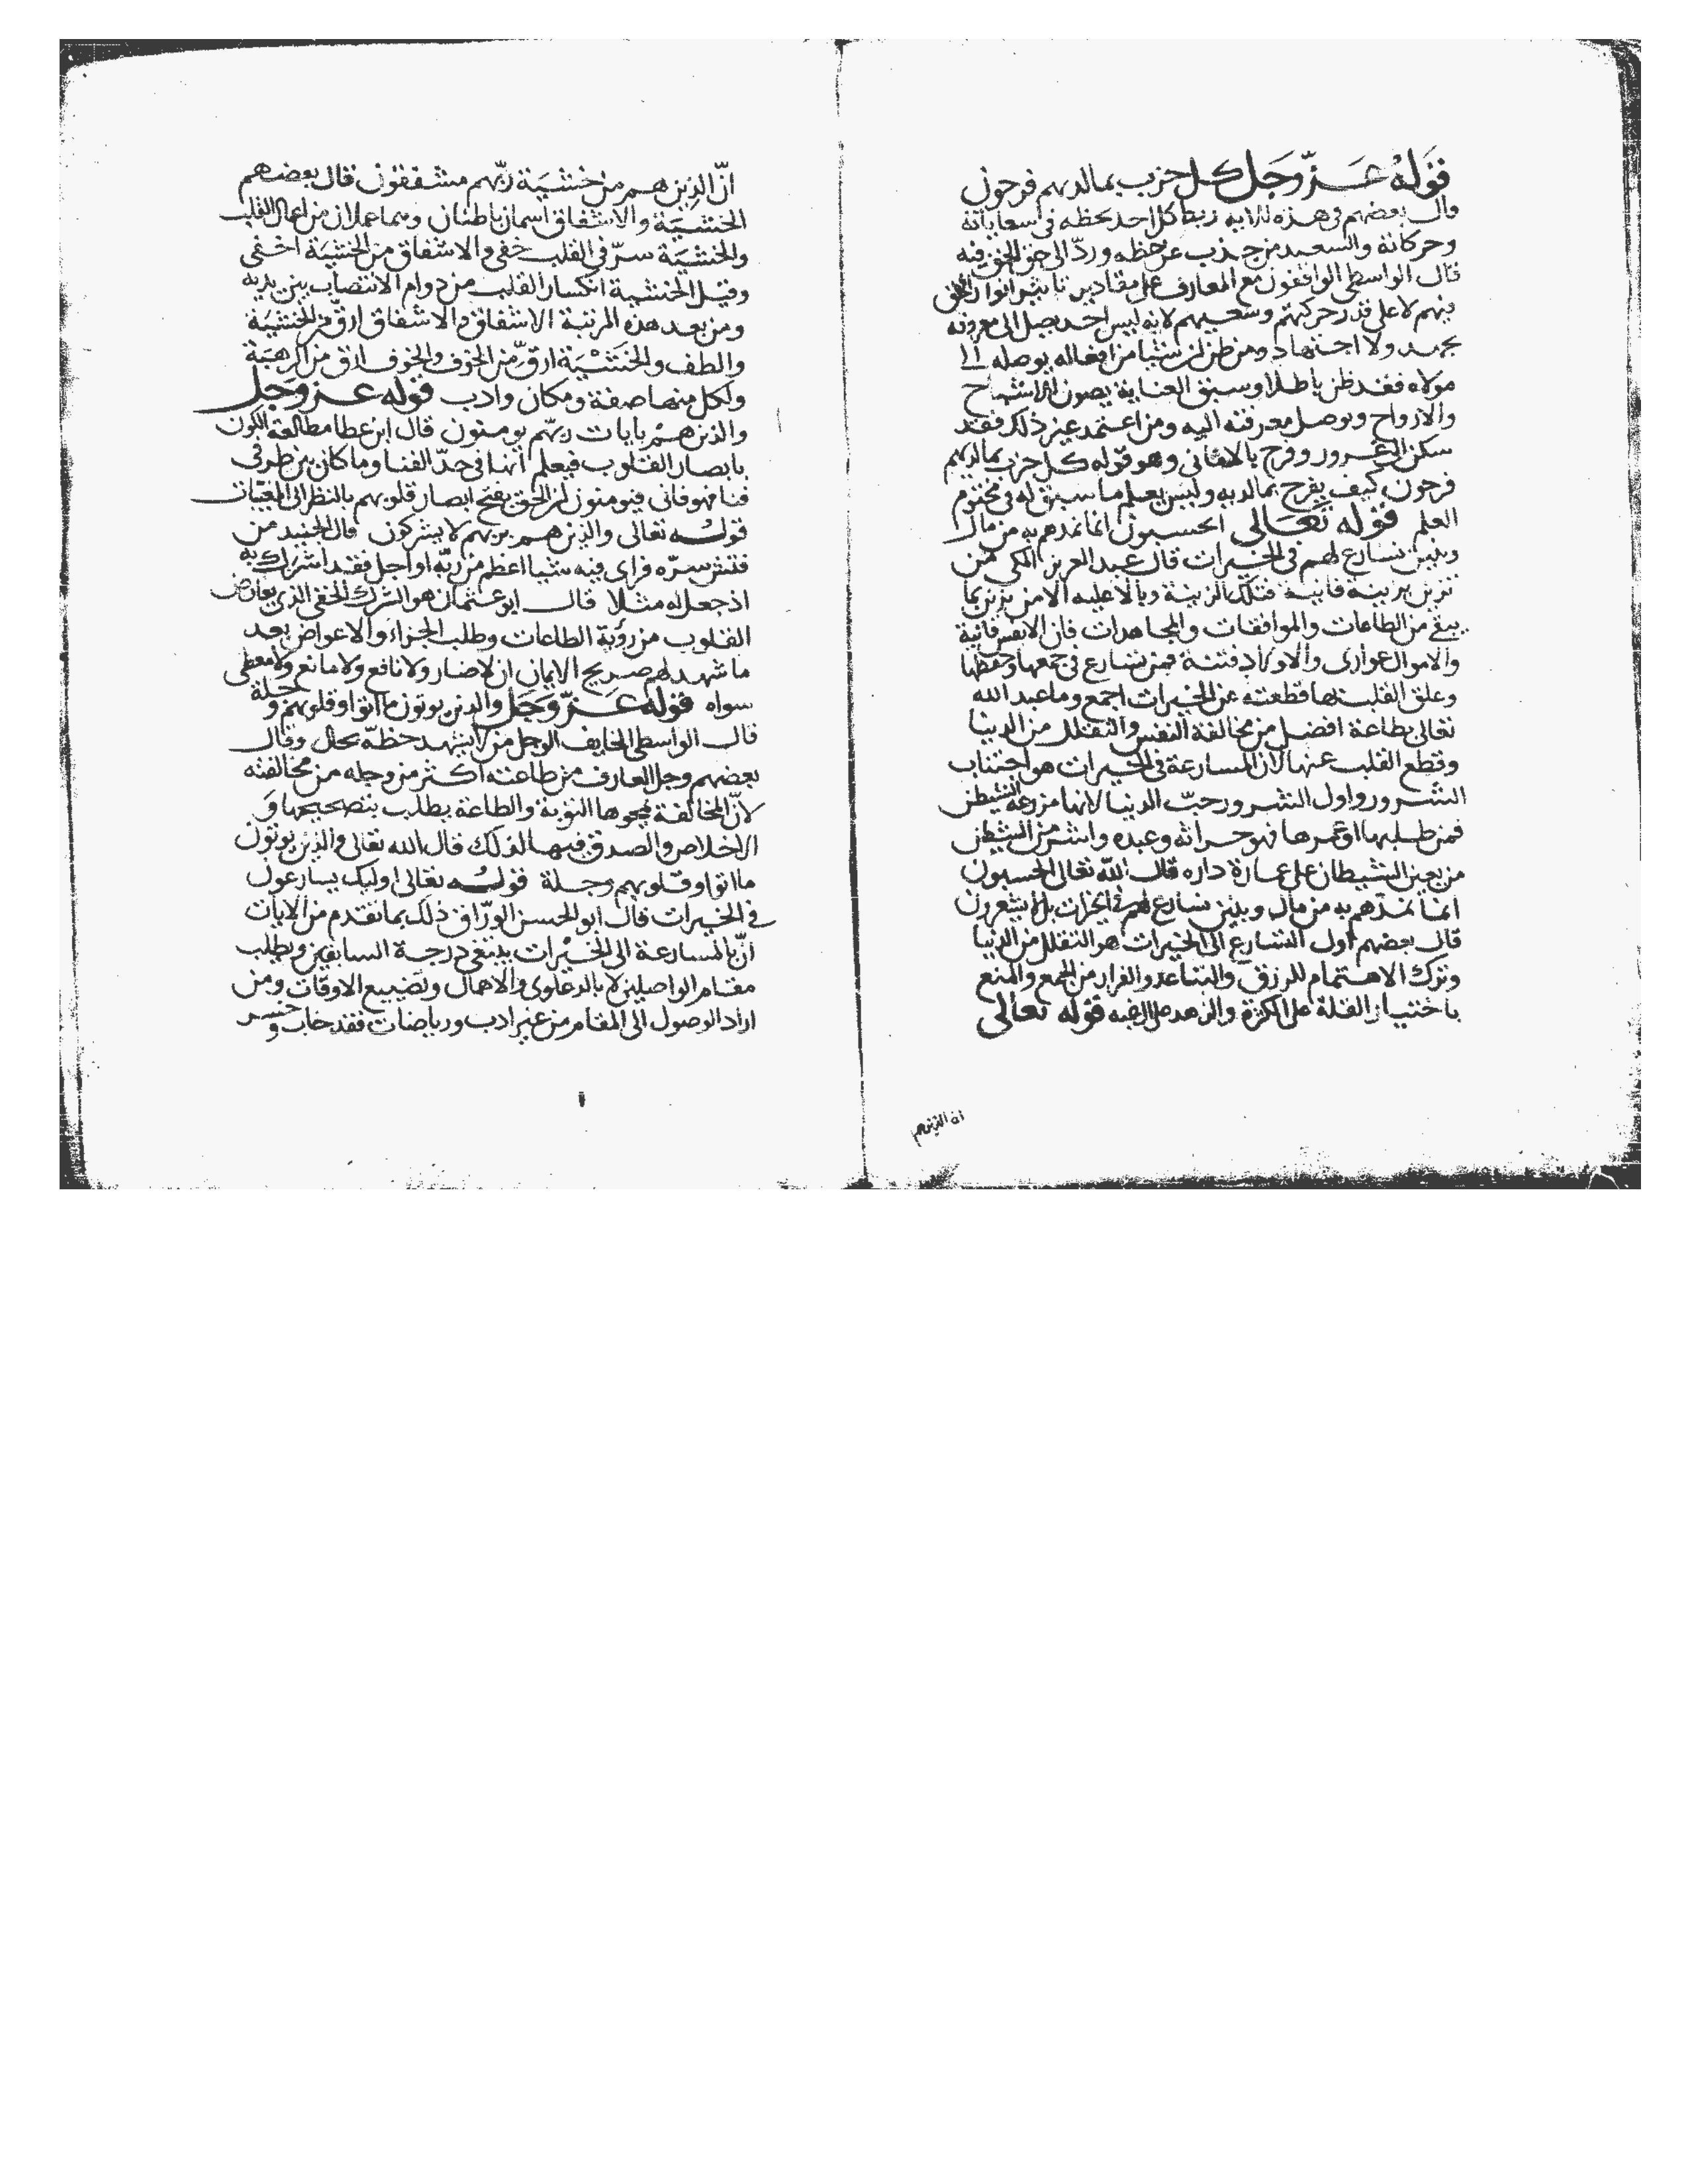 قوله عز وجل كل حزب بما لديهم فرحون
وال بعضهم في هذه الايه ربط كل احد بحظه في سعاياته
وحركاته والسعيد من جذب عن حظه وردّ الى حق الحق فيه
قال الواسطى الواقفون مع المعارف على مقادير تاثير انوار الحق
فيهم لا على قدر حركتهم وسعيهم لانه ليس احد يصل الى معرفته
بجهد ولا اجتهاد ومن ظن ان شيا من افعاله يوصله الى
مولاه فقد ظن باطلا وسبق العناية يصون الاشباح
والارواح ويوصل معرفته اليه ومن اعتمد غير ذلك فقد
سكن الى غرور وفرح بالامانى وهو قوله كل حزب بما لديهم
فرحون كيف يفرح بما لديه وليس يعلم ما سبق له في مختوم
العلم قوله تعالى ايحسبون انما نمدهم به من مال
وبنين نسارع لهم في الخيرات قال عبد العزيز المكي من
تزين بزينة فانية فتلك الزينة وبالا عليه الا من تزين بما
يبقى من الطاعات والموافقات والمجاهدات فان الانفس فانية
والاموال عوارى والاولاد فتنة فمن تسارع في جمعها وحفظها
وعلق القلب بها قطعته عن الخيرات اجمع وما عبد الله
تعالى بطاعة افضل من مخالفة النفس والتقلل من الدنيا
وقطع القلب عنها لان المسارعة في الخيرات هو اجتناب
الشرور واول الشرور حبّ الدنيا لانها مزرعة الشيطن
فمن طلبها او عمرها فهو حراثه وعبده واشر من الشيطن
من يعين الشيطان على عمارة داره قال الله تعالى ايحسبون
انما نمدّهم به من مال وبنين نسارع لهم في الخيرات بل لا يشعرون
قال بعضهم اول التسارع الى الخيرات هو التقلل من الدنيا
وترك الاهتمام للرزق والتباعد والفرار من الجمع والمنع
باختيار القلة على الكثرة والزهد على الرغبه قوله تعالى
ان الذين هم
انّ الذين هم من خشية ربّهم مشفقون قال بعضهم
الخشية والاشفاق اسمان باطنان وهما عملان من اعمال القلب
والخشية سرّ في القلب خفى والاشفاق من الخشية اخفى
وقيل الخشية انكسار القلب من دوام الانتصاب بين يديه
ومن بعد هذه المرتبة الاشفاق والاشفاق ارقّ من الخشية
والطف والخشية ارقّ من الخوف والخوف ارق من الرهبة
ولكل منها صفة ومكان وادب قوله عز وجل
والذين هم بايات ربّهم يومنون قال ابن عطا مطالعة الكون
بابصار القلوب فيعلم انها في حدّ الفنا وما كان بين طرفى
فنا فهو فانى فيومنون ان الحق يفتح ابصار قلوبهم بالنظر الى المغيبات
قوله تعالى والذين هم بربهم لا يشركون قال الجنيد من
فتش سرّه فراى فيه شيا اعظم من ربّه او اجل فقد اشرك به
اذ جعل له مثلا قال ابو عثمان هو الشرك الخفى الذى يعارض
القلوب من رؤية الطاعات وطلب الجزاء والاعواض بعد
ما شهد لهم صريح الايمان ان لا ضار ولا نافع ولا مانع ولا معطى
سواه قوله عزّ وجل والذين يوتون ما اتوا وقلوبهم وجلة
قال الواسطى الخايف الوجل من لا يشهد حظّه بحال وقال
بعضهم وجل العارف من طاعته اكثر من وجله من مخالفته
لانّ المخالفة تمحوها التوبة والطاعة يطلب بتصحيحها و
الاخلاص والصدق فيها لذلك قال الله تعالى والذين يوتون
ما اتوا وقلوبهم وجلة قوله تعالى اوليك يسارعون
في الخيرات قال ابو الحسن الورّاق ذلك بما تقدم من الايات
انّ بالمسارعة الى الخيرات يبتغى درجة السابقين ويطلب
مقام الواصلين لا بالدعاوى والاهمال وتضييع الاوقات ومن
اراد الوصول الى المقام من غير ادب ورياضات فقد خاب وخسر